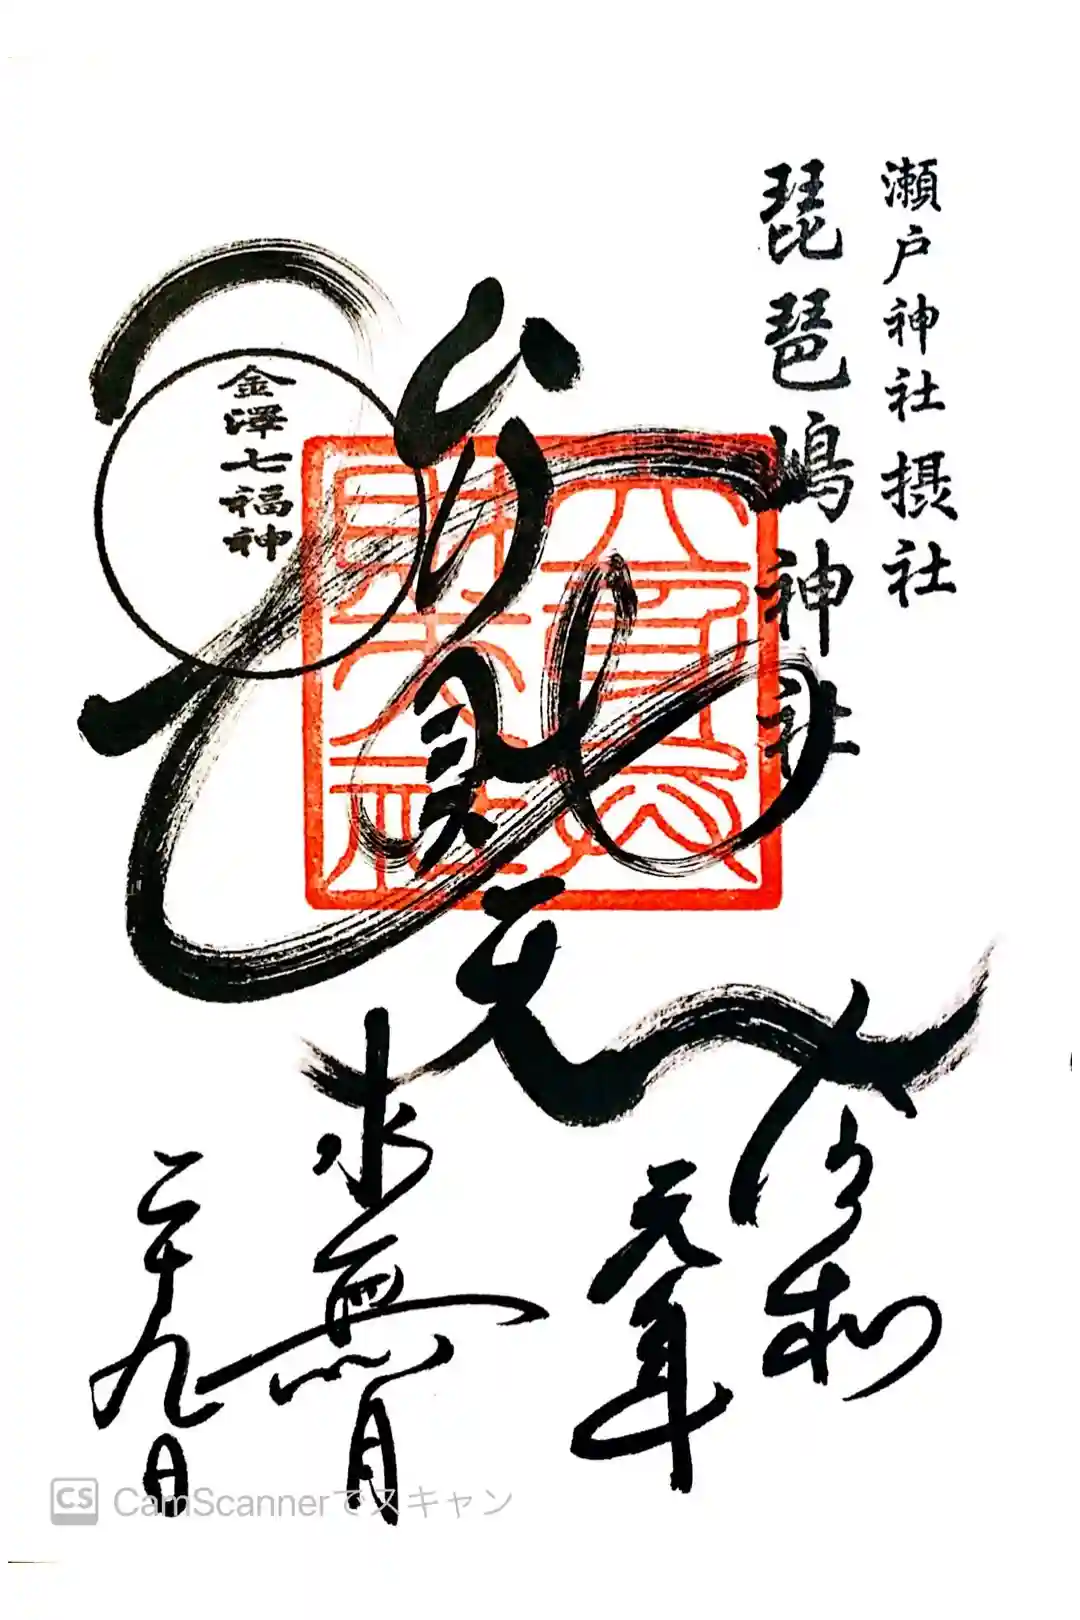 瀬戸神社摂社
琵琶嶋神社
金澤七福神
弁財天
令和
元年
水無月
二十九日
CS CamScannerでスキャン